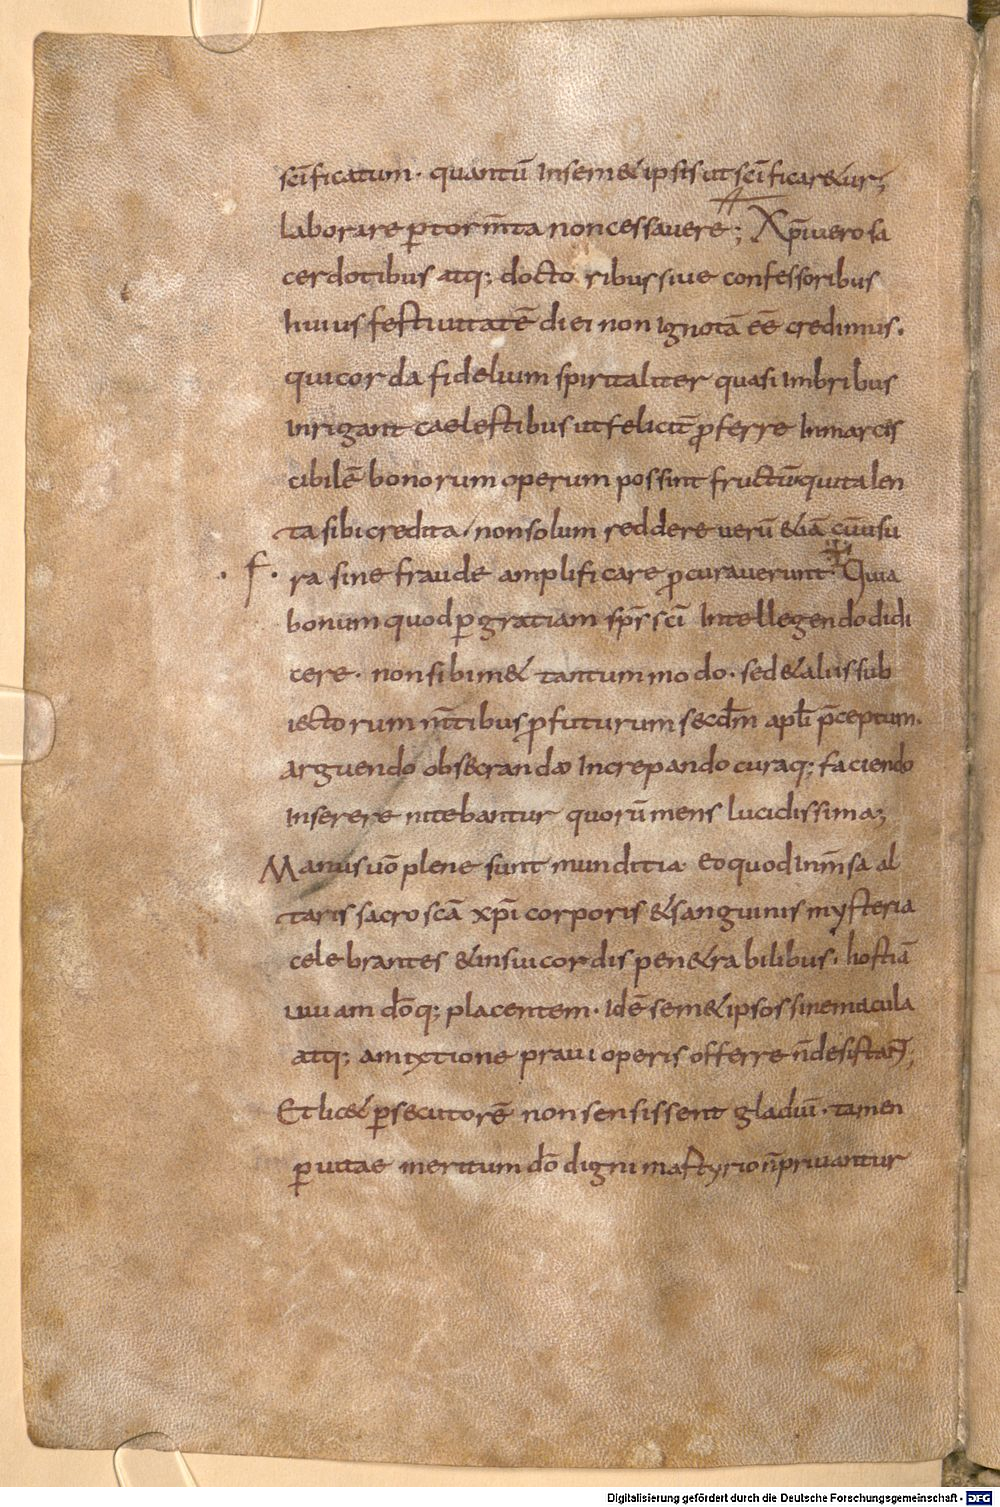 sc̄ificatum· quantū Insem& ipsis ut sc̄ificar&ur;
laborare ꝑ torm̄ta non cessavere; Xp̄i uero sa
cerdotibus atq; doctoribus siue confessoribus
huius festiuitatē diei non Ignotā eē credimus·
qui corda fidelium spiritaliter quasi Imbribus
Inrigant caelestibus ut felicit̄ ꝓferre Inmarcis
cibilē bonorum operum possint fructū· qui talen
ta sibi credita· non solum reddere uerū &iā cū usu
·f· ra sine fraude amplificare ꝓcuraverunt· Quia
bonum quod ꝑ gratiam sp̄s sc̄i Intellegendo didi
cere· non sibim& tantummodo· sed & aliis sub
iectorum m̄tibus ꝓfuturum secd̄m apl̄i p̄ceptum·
arguendo obsecrando Increpando curaq; faciendo
Inserere nitebantur quorū mens lucidissima;
Manus uō plene sunt munditia· Eo quod Inm̄sa al
taris sacro sc̄ā xp̄i corporis & sanguinis mysteria
celebrantes & in sui cordis pen&rabilibus· hostiā
uiuam dōq; placentem· Idē sem& ipsos sine macula
atq; amixtione praui operis offerre n̄ desistan̄t;
Et lic& ꝑsecutorē non sensissent gladiū· tamen
ꝑ uitae meritum dō digni martyrio n̄ priuantur
Digitalisierung gefördert durch die Deutsche Forschungsgemeinschaft - DFG